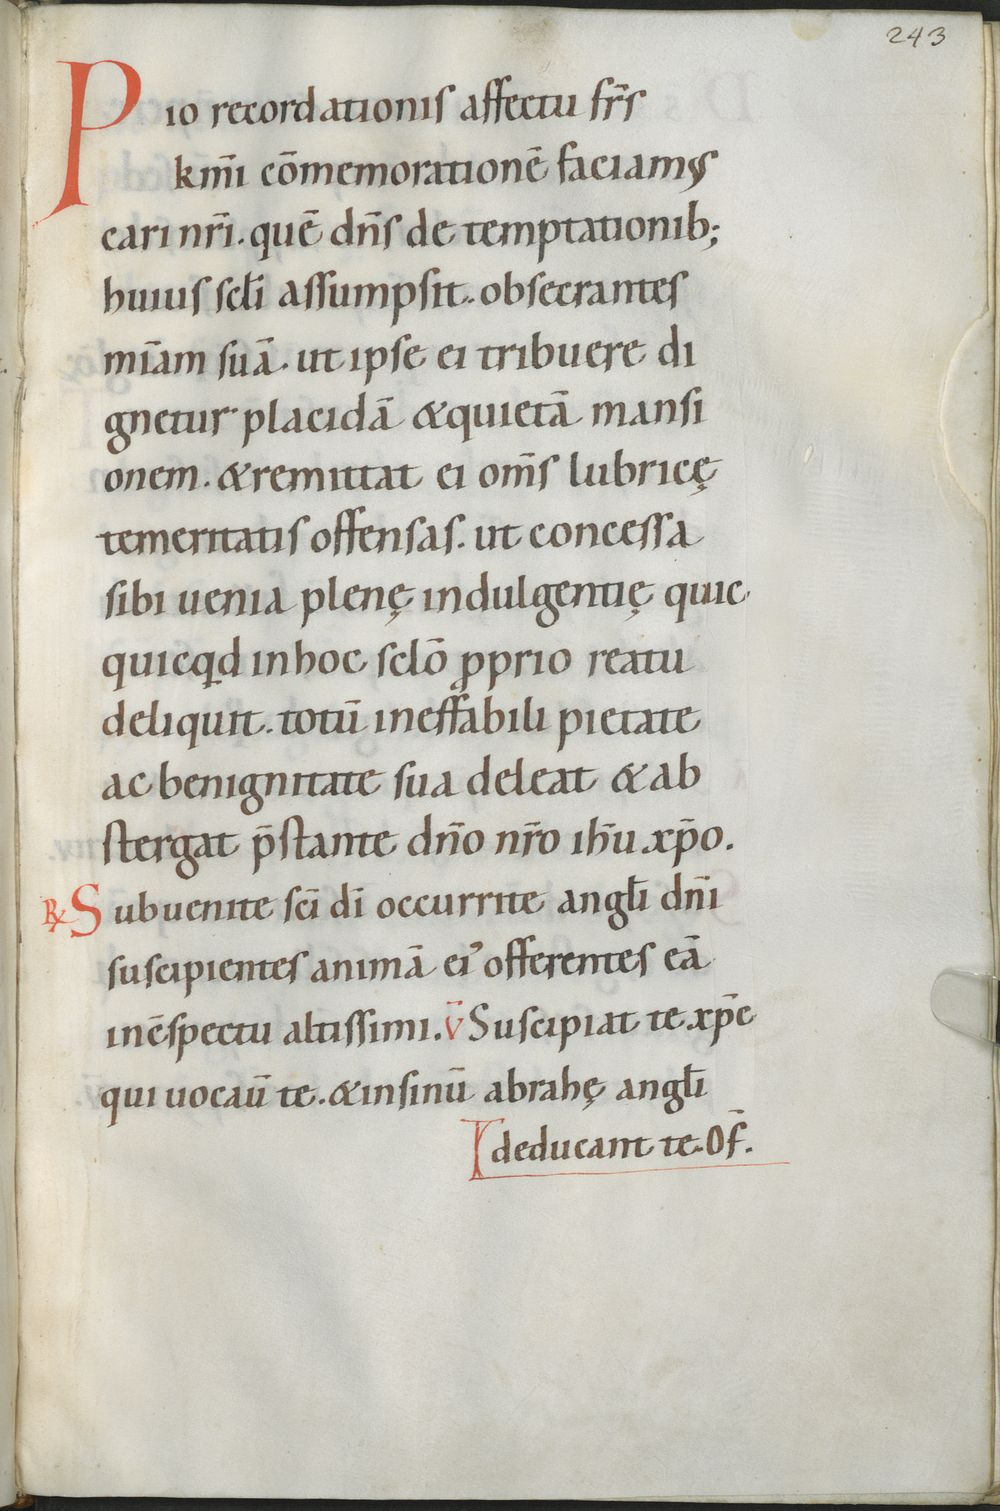 243
Pio recordationis affectu fr̄s
km̄i cōmemorationē faciamus
cari nr̄i. quē dn̄s de temptationib;
huius scl̄i assumpsit. obsecrantes
mīam suā. ut ipse ei tribuere di
gnetur placidā &quietā mansi
onem. &remittat ei om̄s lubricę
temeritatis offensas. ut concessa
sibi uenia plenę indulgentię quic
quicqd inhoc sclō ꝓprio reatu
deliquit. totū ineffabili pietate
ac benignitate sua deleat &ab
stergat p̄stante dn̄o nr̄o ih̄u xp̄o.
℞ Subuenite sc̄i dī occurrite angl̄i dn̄i
suscipientes animā ei᾿ offerentes eā
incspectu altissimi. v̄ Suscipiat te xp̄c
qui uocaū te. &insinū abrahę angl̄i
deducant te. Of̄.